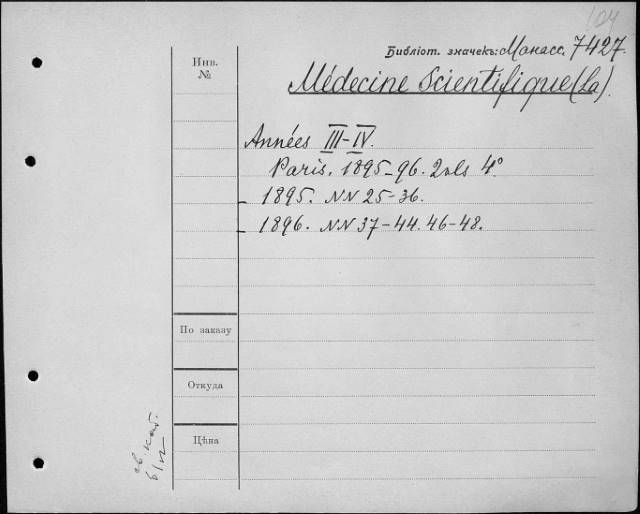 104
Библіот. значекъ: Манасс. 7427.
Инв.
№
Médecine Scientifique (La).
Années III-IV.
Paris. 1895-96. 2 vls 4°
- 1895. NN 25-36.
- 1896. NN 37-44. 46-48.
По заказу
Откуда
Цѣна